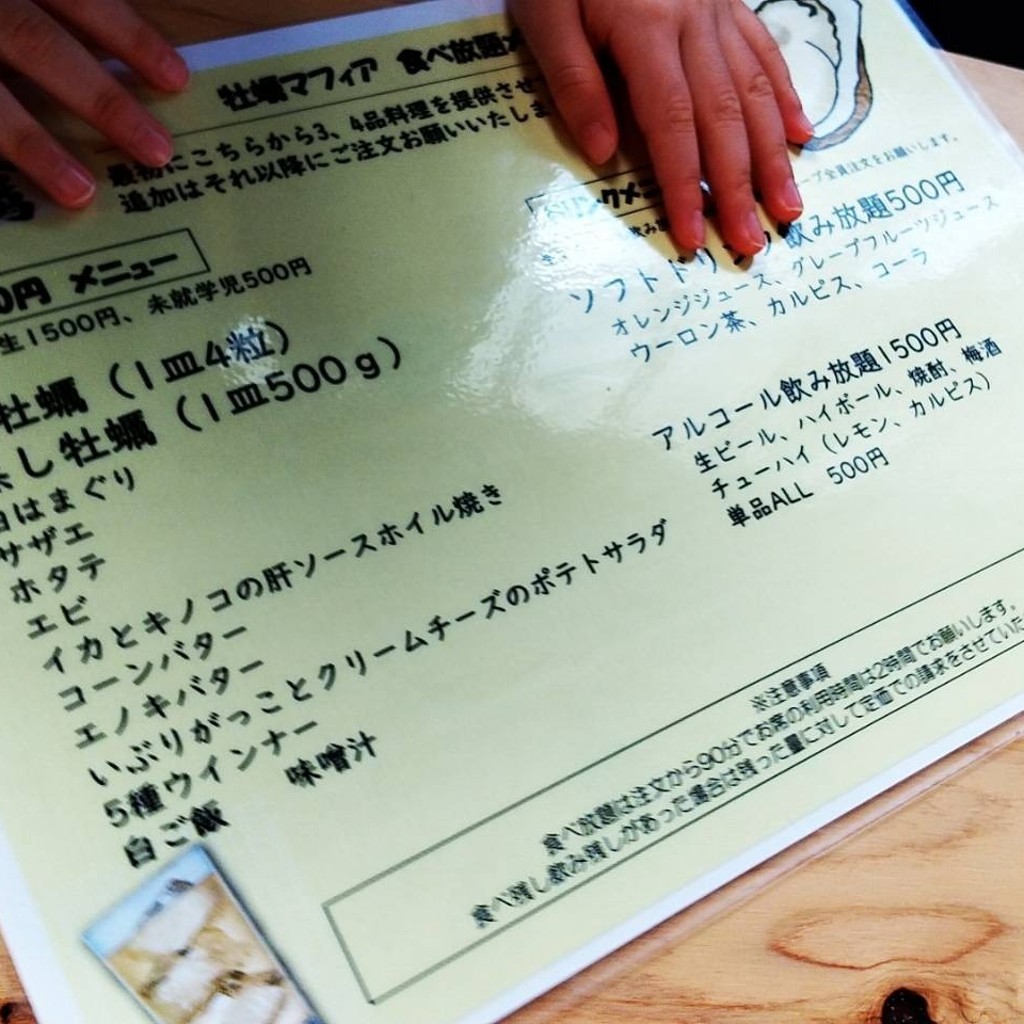 牡蠣マフィア 食べ放題
最初にこちらから3、4品料理を提供させ
追加はそれ以降にご注文お願いいたしま
0円 メニュー
生1500円、未就学児500円
牡蠣（1皿4粒）
し牡蠣（1皿500g）
はまぐり
サザエ
ホタテ
エビ
イカとキノコの肝ソースホイル焼き
コーンバター
エノキバター
いぶりがっことクリームチーズのポテトサラダ
5種ウインナー
白ご飯 味噌汁
ープ全員注文をお願いします。
ソフトドリンク飲み放題500円
オレンジジュース、グレープフルーツジュース
ウーロン茶、カルピス、コーラ
アルコール飲み放題1500円
生ビール、ハイボール、焼酎、梅酒
チューハイ（レモン、カルピス）
単品ALL 500円
※注意事項
食べ放題は注文から90分でお席の利用時間は2時間でお願いします。
食べ残し飲み残しがあった場合は残った量に対して定価での請求をさせていた